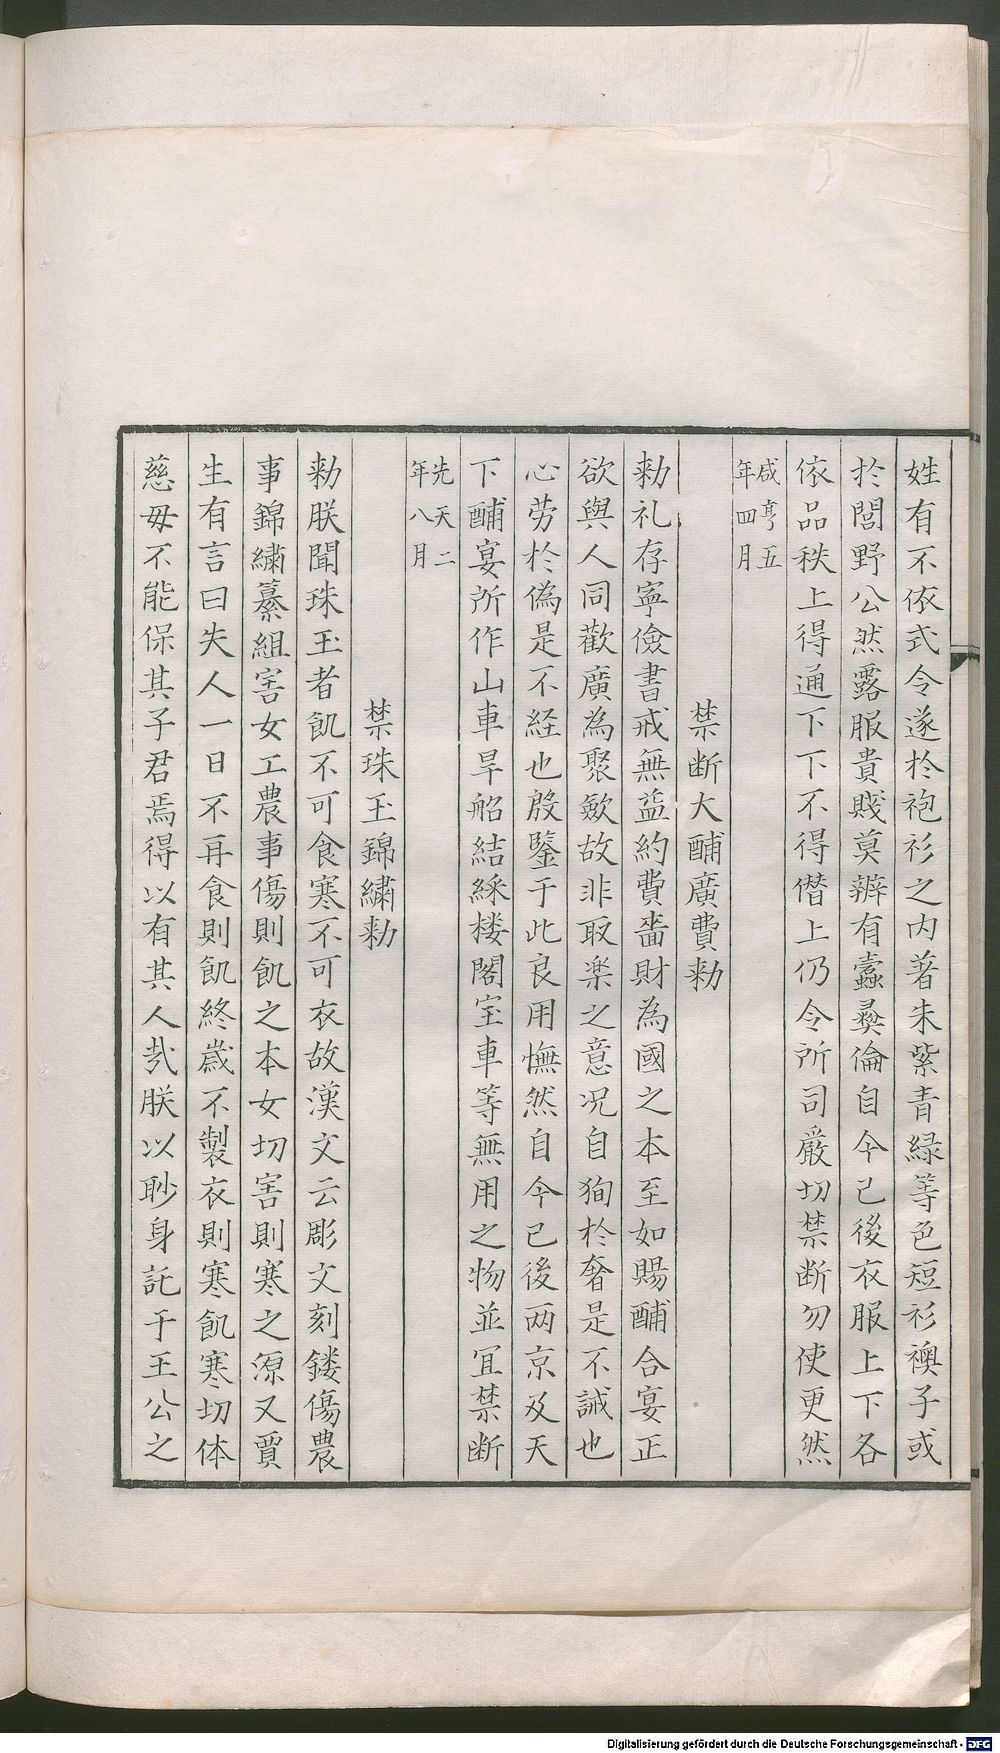 姓有不依式令遂於袍衫之内著朱紫青緑等色短衫襖子或
於閭野公然露服貴賤莫辨有蠹彝倫自今已後衣服上下各
依品秩上得通下下不得僣上仍令所司嚴切禁断勿使更然
咸亨五
年四月
禁断大酺廣費勑
勑礼存寧儉書戒無益約費嗇財為國之本至如賜酺合宴正
欲與人同歡廣為聚歛故非取楽之意况自狥於奢是不誠也
心労於偽是不経也殷鑒于此良用憮然自今已後两京及天
下酺宴所作山車旱船結綵楼閣宝車等無用之物並宜禁断
先天二
年八月
禁珠玉錦繡勑
勑朕聞珠玉者飢不可食寒不可衣故漢文云彫文刻鏤傷農
事錦繡纂組害女工農事傷則飢之本女切害則寒之源又賈
生有言曰失人一日不再食則飢終歲不製衣則寒飢寒切体
慈母不能保其子君焉得以有其人㢤朕以眇身託于王公之
Digitalisierung gefördert durch die Deutsche Forschungsgemeinschaft - DFG